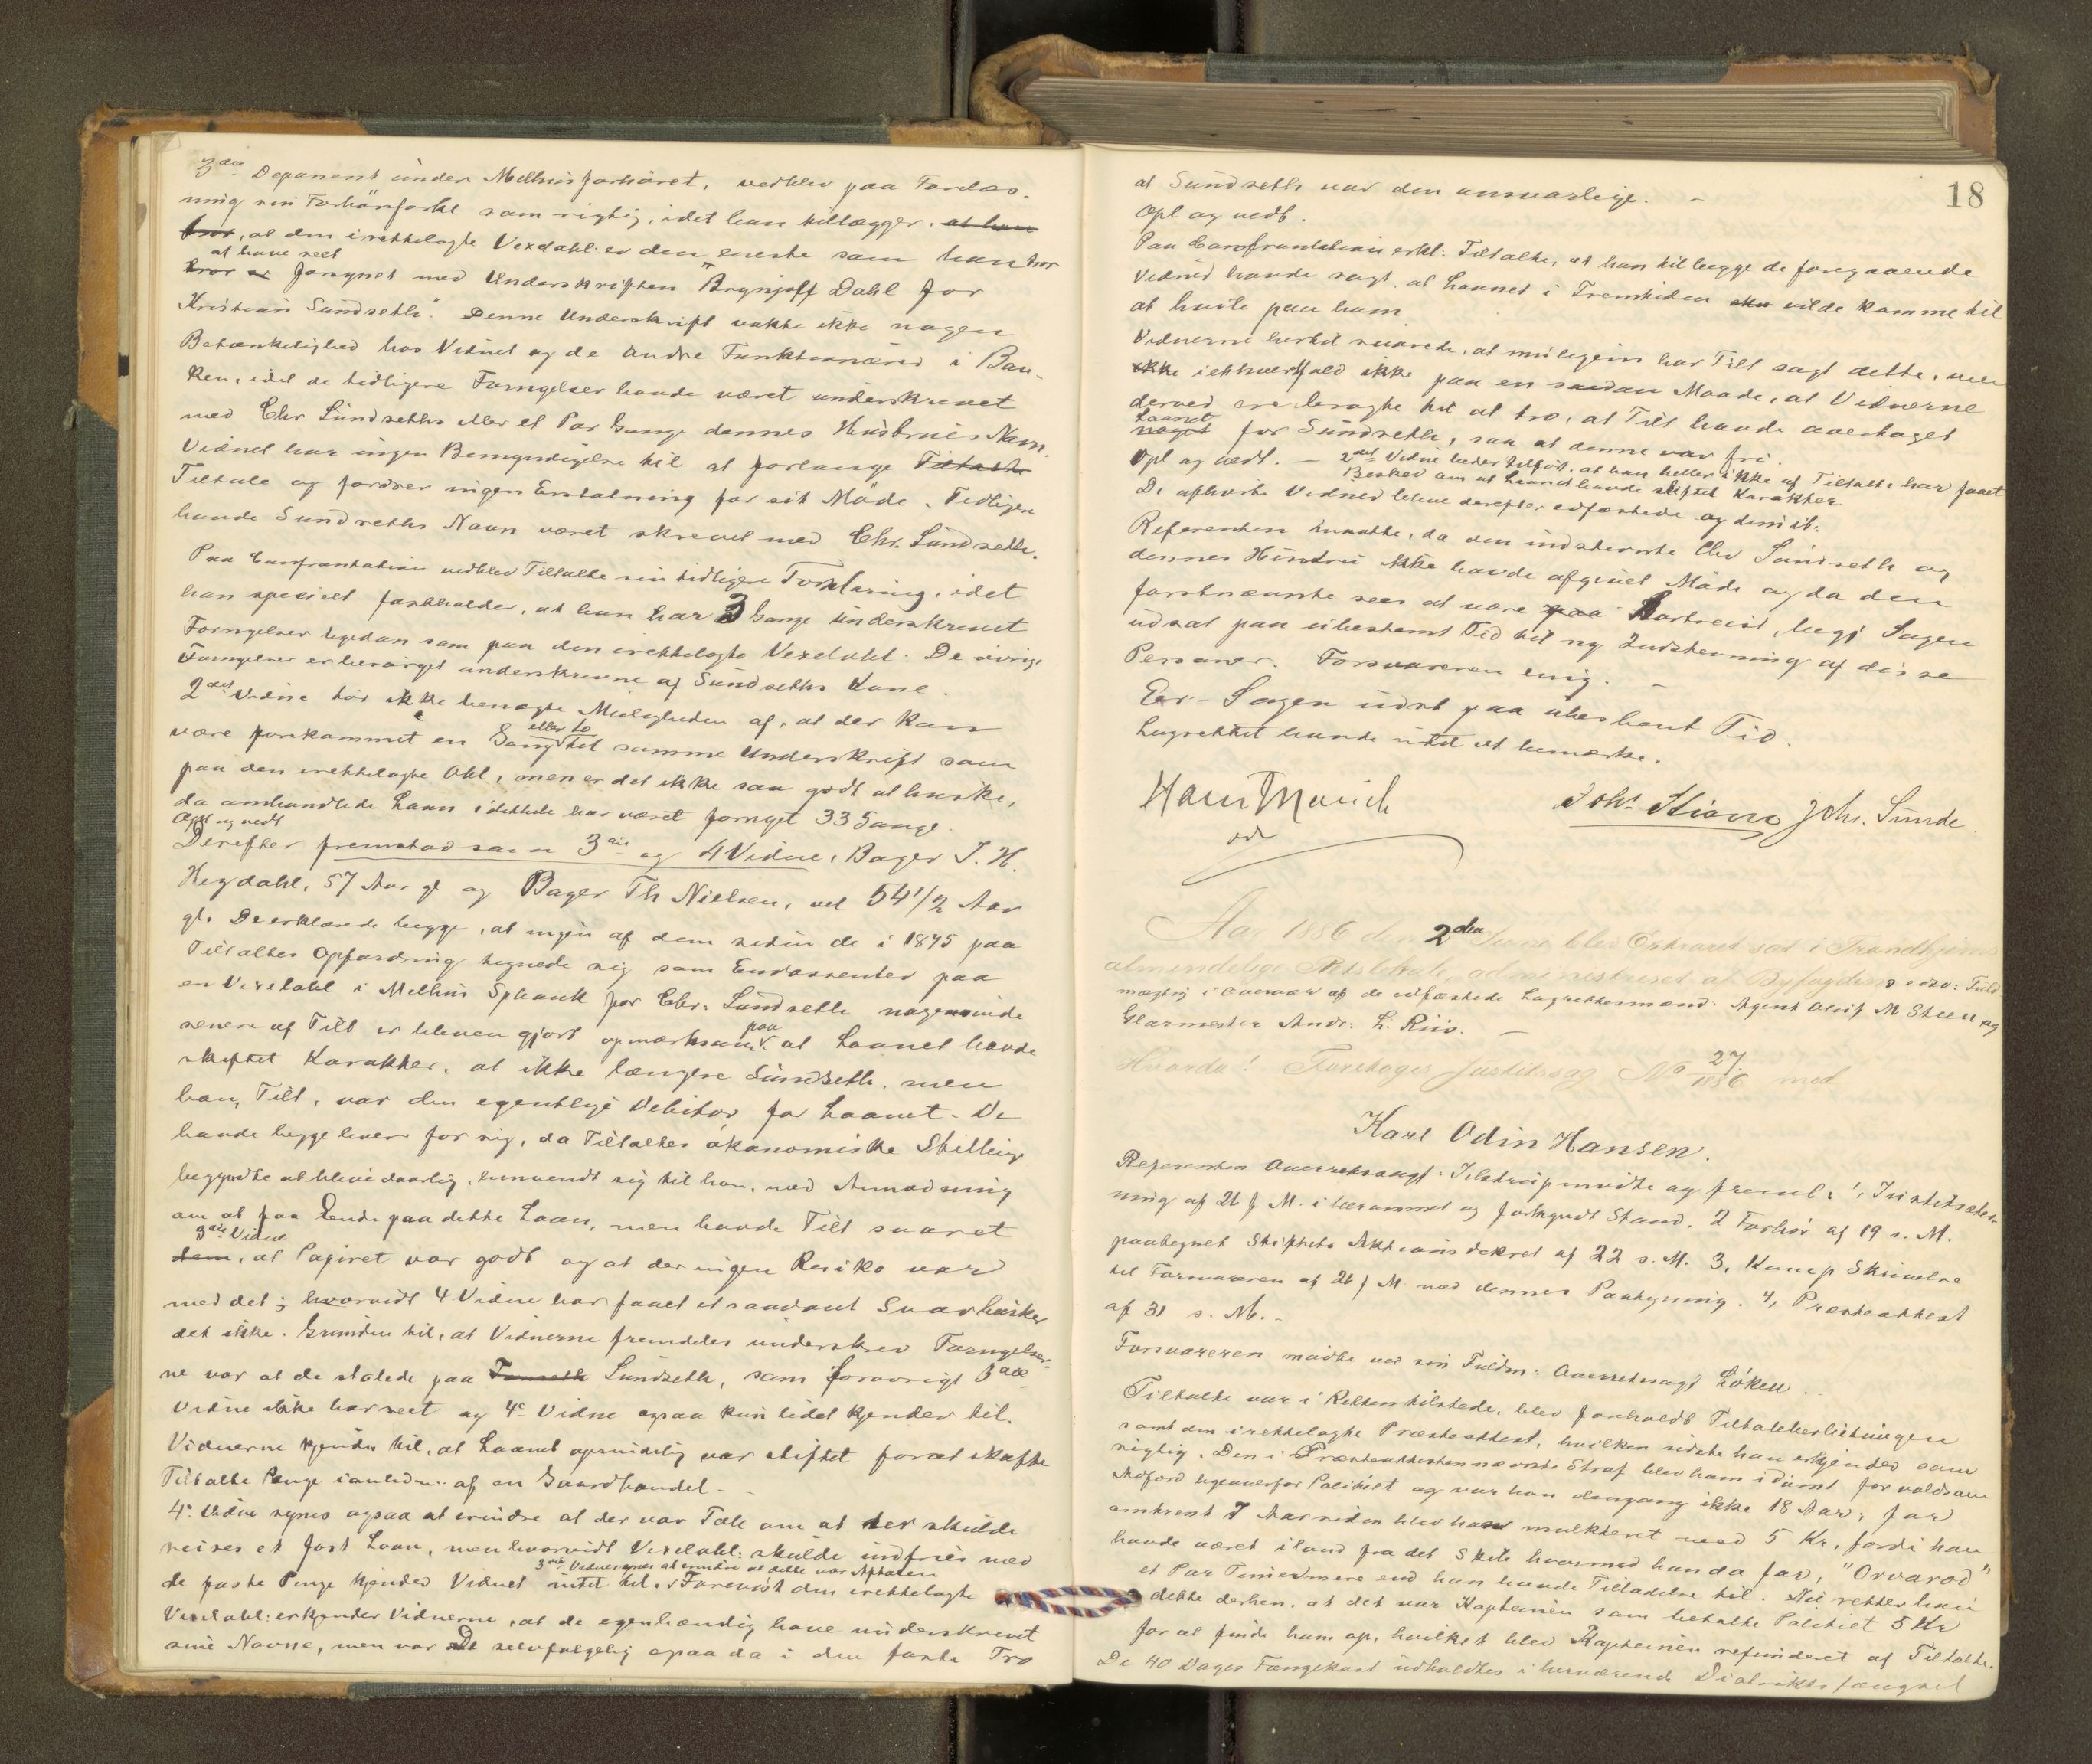 3die Deponent under Melhusforhöret, vedblev paa Foreläs-
ning sin Forhörsforkl som rigtig, idet han tillægger, at han
tror, at den i rettelagte Vexelobl: er den eneste som han tror
at have seet
tror er fornyet med Underskriften "Brynjolf Dahl for
Kristian Sundseth". Denne Underskrift vakte ikke nogen
Betænkelighed hos Vidnet og de andre Funktionærer i Ban-
ken, idet de tidligere Fornyelser havde været underskrevet
med Chr Sundseths eller et Par Gange dennes Hustrues Navn.
Vidnet har ingen Bemyndigelse til at forlange Tiltalte
Tiltale og fordrer ingen Erstatning for sit Möde. Tidligere
havde Sundseths Navn været skrevet med Chr. Sundseth.
Paa Confrontation vedblev Tiltalte sin tidligere Forklaring, idet
han specielt fastholder, at han har 3 Gange underskrevet
Fornyelser ligedan som paa den irettelagte Vexelobl: De övrige
Fornyelser er besörget underskrevne af Sundseths Kone.
2det Vidne tör ikke benægte Muligheden af, at der kan
være forekommet en Gang eller to til samme Underskrift som
paa den irettelagte Obl, men er det ikke saa godt at huske,
da omhandlede Laan idethele har været fornyet 33 Gange.
Opl og vedt
Derefter fremstod som 3die og 4 Vidne, Bager J. H.
Hegdahl, 57 Aar gl og Bager Th Nielsen, vel 54 1/2 Aar
gl. De erklærede begge, at ingen af dem siden de i 1875 paa
Tiltaltes Opfordring tegnede sig som Endossenter paa
en Vexelobl i Melhus Spbank for Chr: Sundseth nogensinde
senere af Tilt er bleven gjort opmærksom paa at Laanet havde
skiftet Karakter, at ikke længere Sundseth, men
han, Tilt, var den egentlige Debitor for Laanet. De
havde begge hver for sig, da Tiltaltes ökonomiske Stilling
begyndte at blive daarlig, henvendt sig til ham, med Anmodning
om at faa Ende paa dette Laan, men havde Tilt svaret
3die Vidne
dem, at Papiret var godt og at der ingen Risiko var
med det; hvorvidt 4 Vidne har faaet et saadant Svar husker
det ikke. Grunden til, at Vidnerne fremdeles underskrev Fornyelser-
ne var at de stolede paa Sundseth, som forövrigt 3die
Vidne ikke har seet og 4e Vidne ogsaa kun lidet kjender til.
Vidnerne kjender til, at Laanet oprindelig var stiftet forat skaffe
Tiltalte Penge i anledn: af en Gaardhandel. -
4e Vidne synes ogsaa at erindre at der var Tale om at der skulde
reises et fast Laan, men hvorvidt Vexelobl: skulde indfries med
3die Vidne synes at erindre at dette var Aftalen
de faste Penge kjender Vidnet intet til. Forevist den irettelagte
Vexelobl: erkjender Vidnerne, at de egenhændig have underskrevet
sine Navne, men var De selvfølgelig ogsaa da i den faste Tro
18
at Sundseth var den ansvarlige. -
Opl og vedt.
Paa Confrontation erkl: Tiltalte, at han til begge de foregaaende
Vidner havde sagt, at Laanet i Fremtiden vilde komme til
at hvile paa ham
Vidnerne hertil svarede, at muligens har Tilt sagt dette, men
ikke iethvertfald ikke paa en saadan Maade, at Vidnerne
derved ere bragte til at tro, at Tilt havde overtaget
Laanet
noget for Sundseth, saa at denne var fri.
Opl og vedt. - 2det Vidne beder tilföiet, at han heller ikke af Tiltalte har faaet
Besked om at Laanet havde skiftet Karakter
De afhørte Vidner bleve derefter edfæstede og dimit:
Referenten maatte, da den indstevnte Chr Sundseth og
dennes Hustru ikke havde afgivet Möde og da den
forstnævnte sees at være bortreist, begj Sagen
udsat paa ubestemt Tid til ny Indstevning af disse
Personer. Forsvareren enig. -
Er - Sagen uds paa ubestemt Tid.
Lagrettet havde intet at bemærke.
Johs Kiær Joh. Sunde
Aar 1886 den 2den Juni blev Extraret sat i Trondhjems
almindelige Retslokale, administreret af Byfogdens edsv: Fuld
mægtig i Overvær af de edfæstede Lagrettesmænd: Agent Oluf M Steen og
Glarmester Andr: L. Riis. -
Hvorda! Foretoges Justitssag No 27/1886 mod
Karl Odin Hansen.
Referenten Oversagf. mödte og freml: 1, Justitsstev-
ning af 26 f M. i berammet og forkyndt Stand. 2 Forhör af 19 s. M.
paategnet Stiftets Aktionsdekret af 22 s. M. 3, Skrivelse
til Forsvareren af 26 f M med dennes Paategning. 4, Præsteattest
af 31 s. M. -
Forsvareren mödte ved sin Fuldm: Overretssagf Löken. -
Tiltalte var i Retten tilstede, blev foreholdt Tiltalebeslutningen
samt den i rettelagte Præsteattest, hvilken sidste han erkjender som
rigtig. Den i Præsteattesten nævnte Straf blev ham idömt for voldsom
Adfærd ligeoverfor Politiet og var han dengang ikke 18 Aar; for
omkrent 7 Aar siden blev han mulkteret med 5 Kr, fordi han
havde været iland fra det Skib hvormed han da for, "Orvarod"
et Par Timer mere end han havde Tilladelse til. Nu retter han
dette derhen, at det var Kapteinen som betalte Politiet 5 Kr
for at finde ham op, hvilket blev Kapteinen refunderet af Tiltalte.
De 40 Dages Fangekost udholdtes i herværende Distriktsfængsel